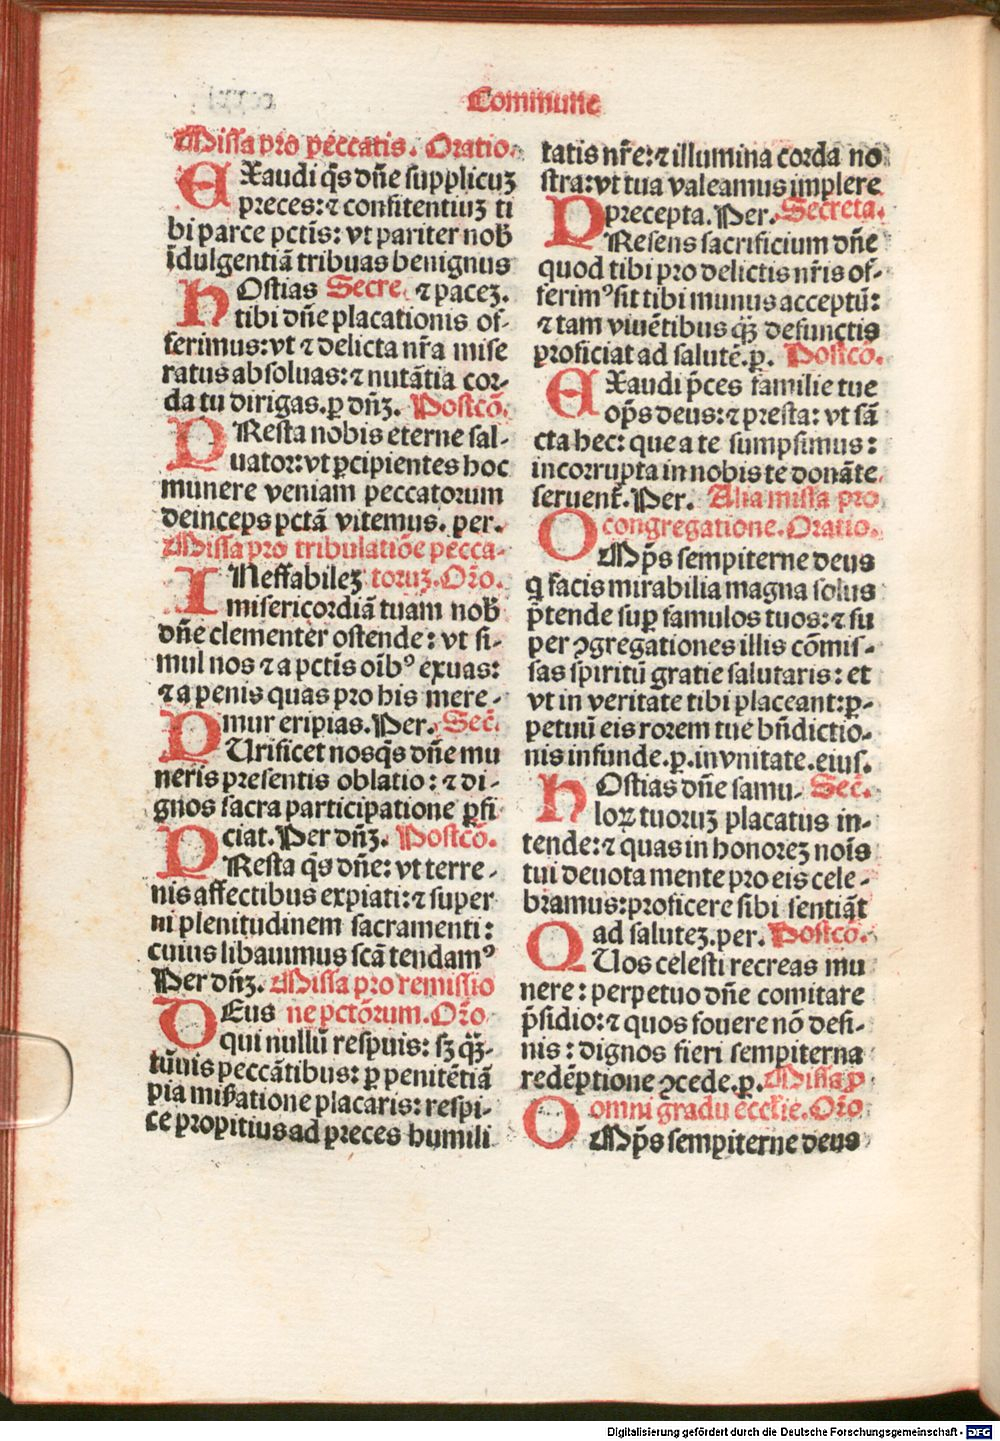 Commune
Missa pro peccatis. Oratio.
EXaudi q̃s dñe supplicuꝫ
preces: ⁊ confitentiuꝫ ti
bi parce pctĩs: vt pariter nob̃
ĩdulgentiã tribuas benignus
hOstias Secre. ⁊ paceꝫ.
tibi dñe placationis of-
ferimus: vt ⁊ delicta nr̃a mise
ratus absoluas: ⁊ nutãtia cor-
da tu dirigas. ꝑ dñꝫ. Postcõ.
PResta nobis eterne sal-
uator: vt ꝑcipientes hoc
munere veniam peccatorum
deinceps pctã vitemus. per.
Missa pro tribulatiõe pecca-
INeffabileꝫ toruꝫ. Or̃o.
misericordiã tuam nob̃
dñe clementer ostende: vt si-
mul nos ⁊ a pctĩs oĩbꝰ exuas:
⁊ a penis quas pro his mere-
mur eripias. Per. Secr̃.
PUrificet nos q̃s dñe mu
neris presentis oblatio: ⁊ di-
gnos sacra participatione ꝑfi
ciat. Per dñꝫ. Postcõ.
PResta q̃s dñe: vt terre-
nis affectibus expiati: ⁊ super
ni plenitudinem sacramenti:
cuius libauimus scã tendamꝰ
Per dñꝫ. Missa pro remissio
DEus ne pctõrum. Or̃o
qui nullũ respuis: sꝫ q̃ꝫ-
tũuis peccãtibus: ꝑ penitẽtiã
pia mis̃atione placaris: respi-
ce propitius ad preces humili
tatis nr̃e: ⁊ illumina corda no
stra: vt tua valeamus implere
precepta. Per. Secreta.
PResens sacrificium dñe
quod tibi pro delictis nr̃is of-
ferimꝰ sit tibi munus acceptũ:
⁊ tam viuẽtibus q̃ꝫ defunctis
proficiat ad salutẽ. ꝑ. Postcõ.
EXaudi p̃ces familie tue
op̃s deus: ⁊ presta: vt sã
cta hec: que a te sumpsimus:
incorrupta in nobis te donãte
seruent̃. Per. Alia missa pro
congregatione. Oratio.
OMp̃s sempiterne deus
q̃ facis mirabilia magna solus
p̃tende suꝑ famulos tuos: ⁊ su
per ꝯgregationes illis cõmis-
sas spiritũ gratie salutaris: et
vt in veritate tibi placeant: ꝑ-
petuũ eis rorem tue bñdictio-
nis infunde. ꝑ. in vnitate. eius.
hOstias dñe famu- Secr̃.
loꝝ tuoruꝫ placatus in-
tende: ⁊ quas in honoreꝫ noĩs
tui deuota mente pro eis cele-
bramus: proficere sibi sentiãt
ad saluteꝫ. per. Postcõ.
QUos celesti recreas mu
nere: perpetuo dñe comitare
p̃sidio: ⁊ quos fouere nõ desi-
nis: dignos fieri sempiterna
redẽptione ꝯcede. ꝑ. Missa ꝓ
omni gradu eccl̃ie. Or̃o
OMp̃s sempiterne deus
Digitalisierung gefördert durch die Deutsche Forschungsgemeinschaft - DFG